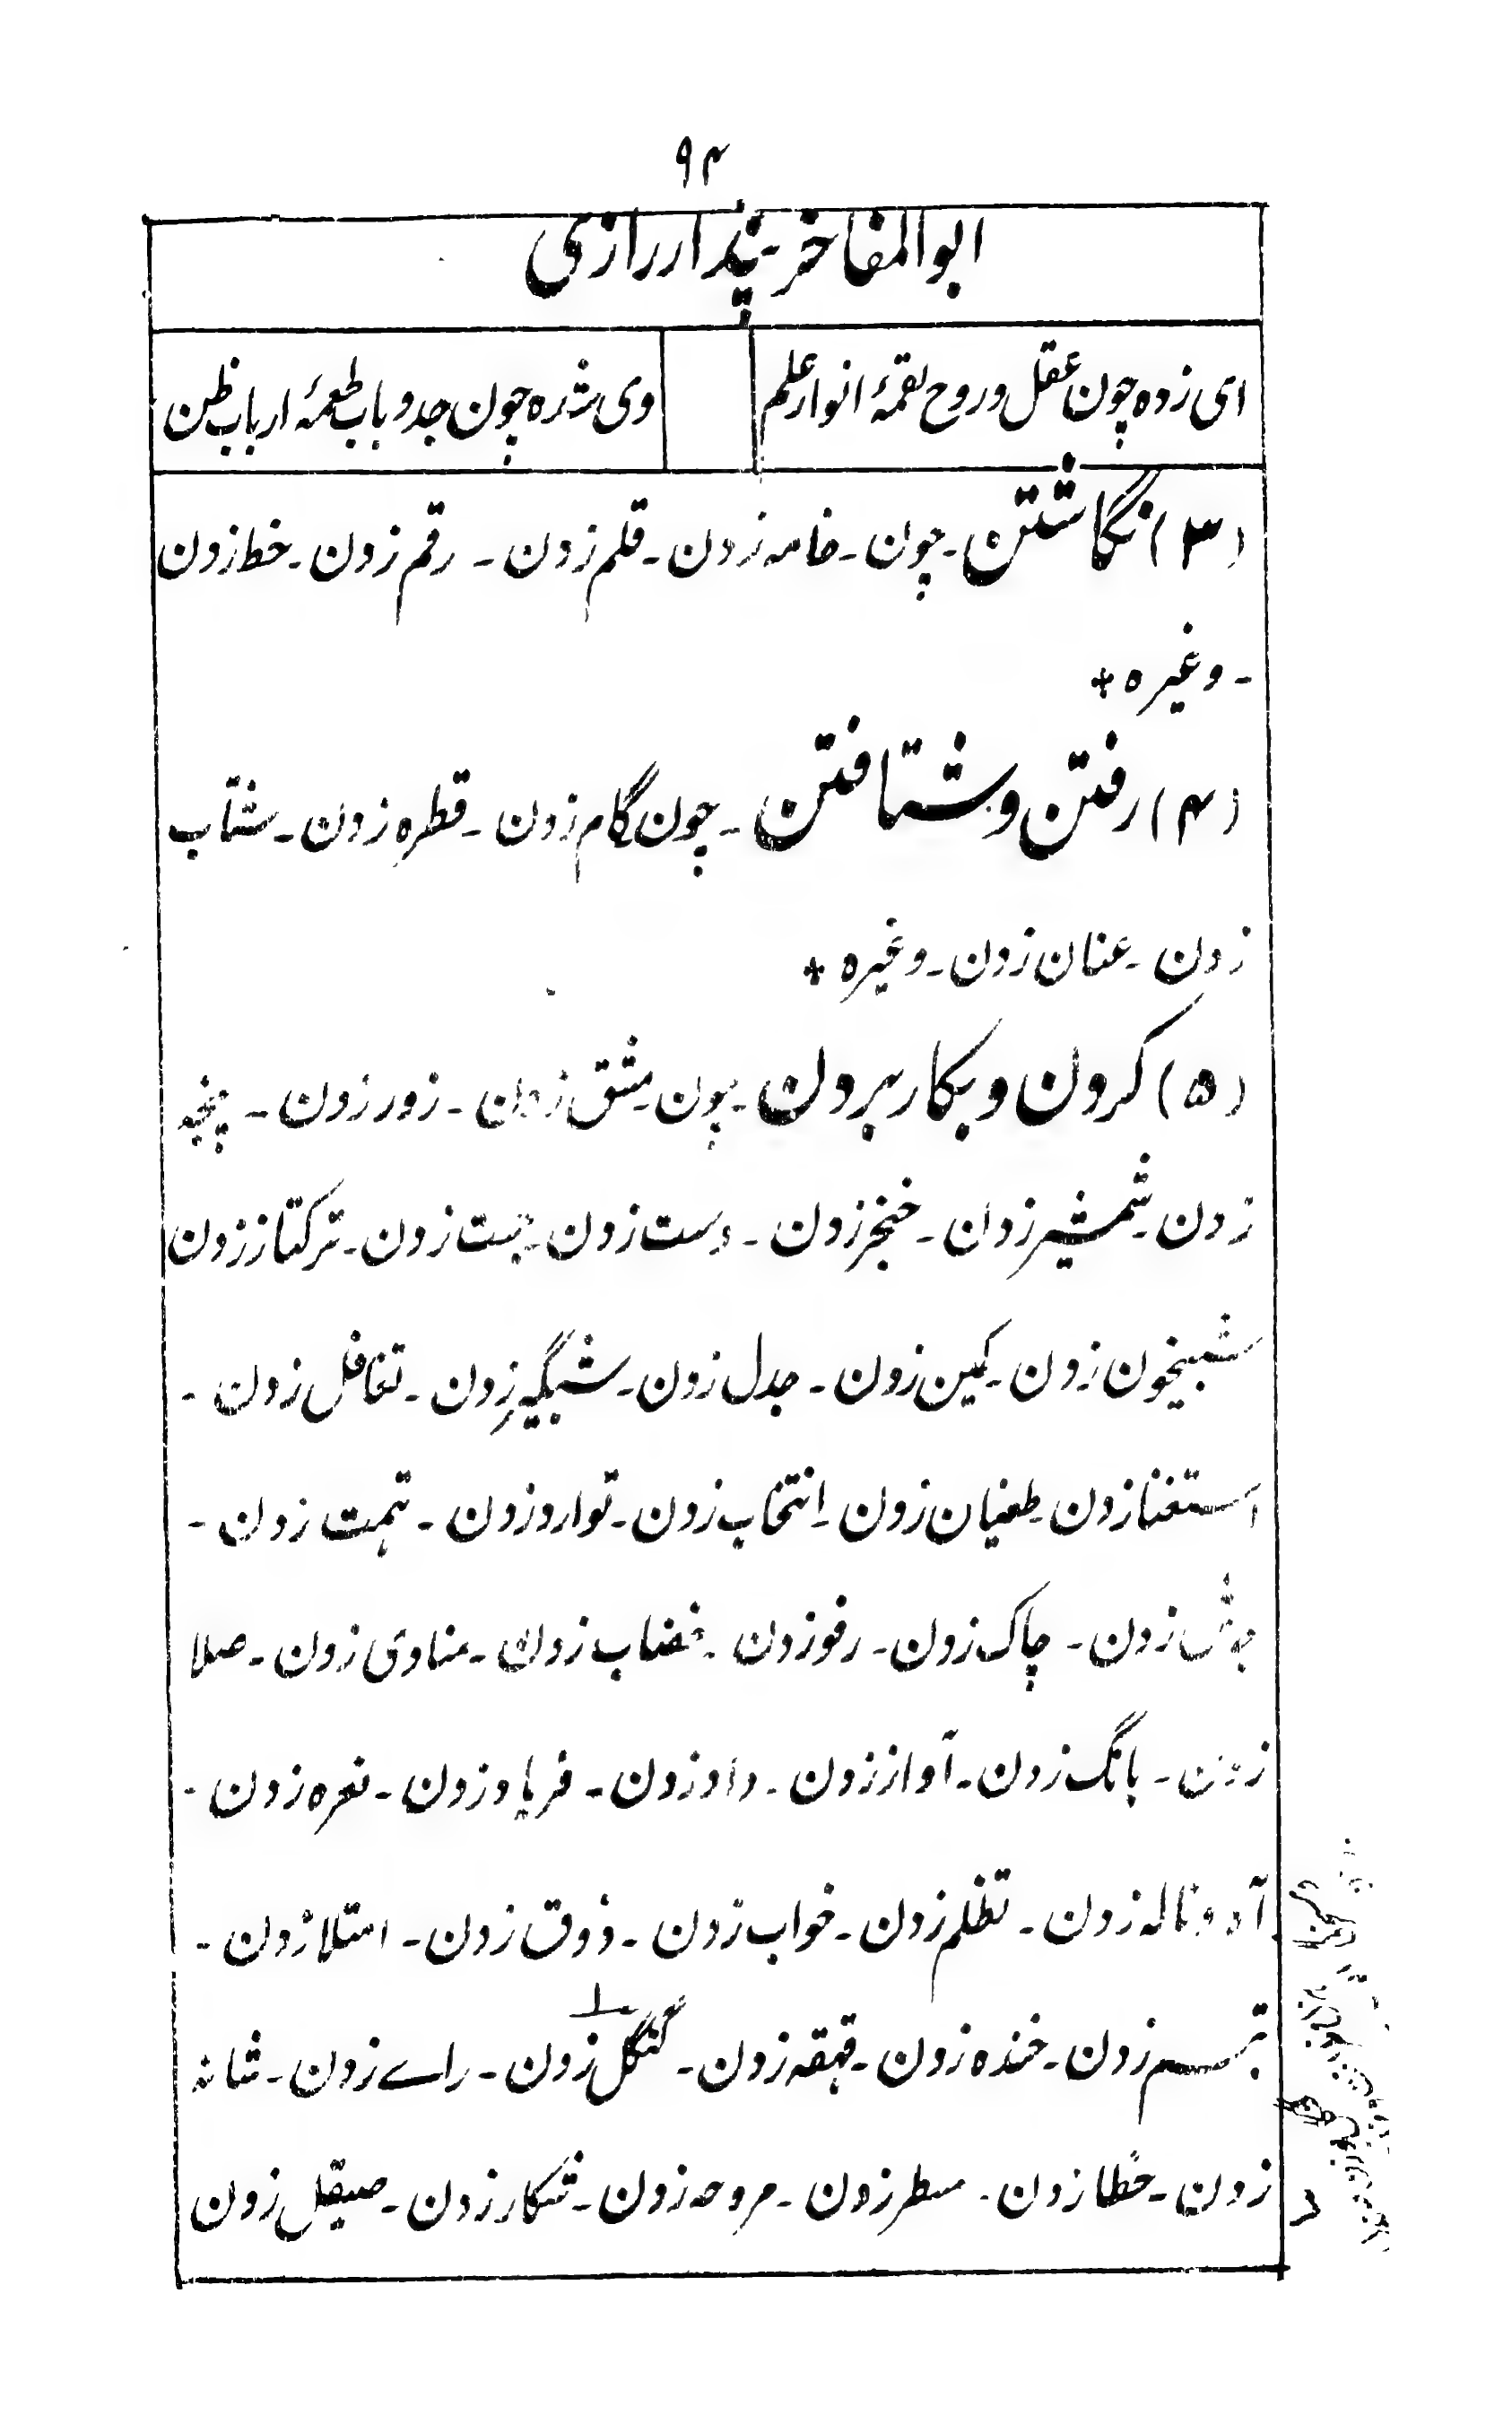 ۹۴
ابوالمفاخر پندار رازی
ای زده چون عقل و روح لقمۀ انوار علم
وی شده چون جد و باب طعمۀ ارباب ظن
(۳) نگاشتن ـ چون ـ خامه زدن ـ قلم زدن ـ رقم زدن ـ خط زدن
ـ وغیره +
(۴) رفتن و شتافتن ـ چون گام زدن ـ قطره زدن ـ شتاب
زدن ـ عنان زدن ـ وغیره +
(۵) کردن و بکار بردن ـ چون مشق زدن ـ زور زدن ـ پنجه
زدن ـ شمشیر زدن ـ خنجر زدن ـ دست زدن ـ جست زدن ـ ترکتاز زدن
شبیخون زدن ـ کمین زدن ـ جدل زدن ـ شبگیر زدن ـ تغافل زدن ـ
استغنا زدن ـ طغیان زدن ـ انتخاب زدن ـ توارد زدن ـ تهمت زدن ـ
جوش زدن ـ چاک زدن ـ رفو زدن ـ خضاب زدن ـ منادی زدن ـ صلا
زدن ـ بانگ زدن ـ آواز زدن ـ داد زدن ـ فریاد زدن ـ نعره زدن ـ
آه و ناله زدن ـ تظلم زدن ـ خواب زدن ـ ذوق زدن ـ امتلا زدن ـ
تبسم زدن ـ خنده زدن ـ قهقهه زدن ـ کنگل زدن ـ راے زدن ـ شانه
زدن ـ خطا زدن ـ مسطر زدن ـ مروحه زدن ـ شکار زدن ـ صیقل زدن